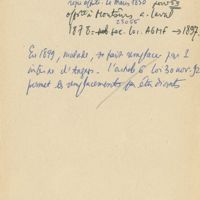 reçu offic. Le Mans 1850
offic à Montours a. Laval
23055
1878 = soc. loc. AGMF → 1897
En 1899, malade, se fait remplacer par 1
interne d'Angers. l'article 6 loi 30 nov. 92
permet les remplacements par étudiants